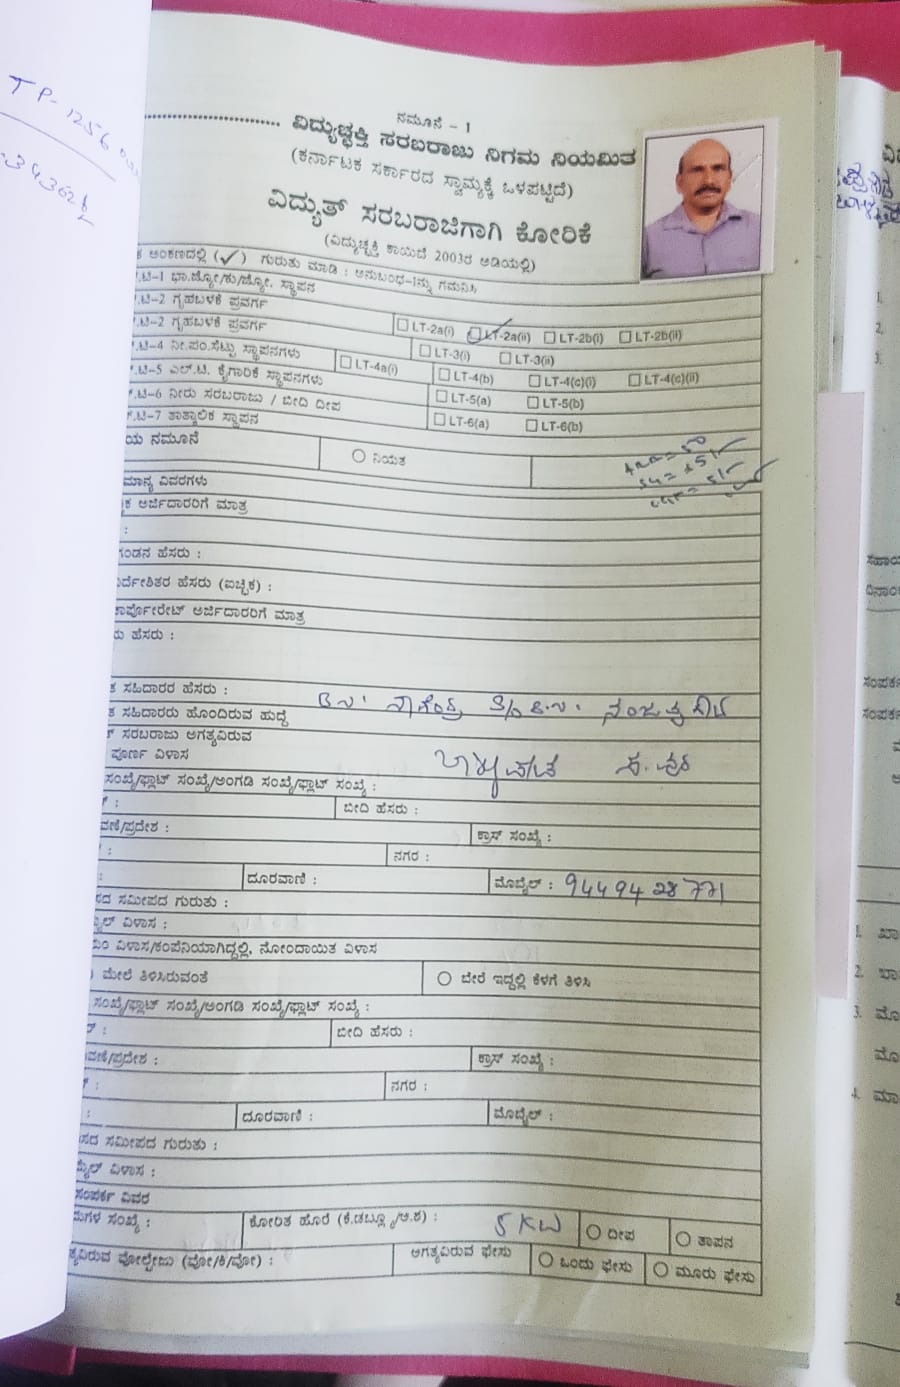 TP-1256
34362
ನಮೂನೆ - 1
ವಿದ್ಯುಚ್ಛಕ್ತಿ ಸರಬರಾಜು ನಿಗಮ ನಿಯಮಿತ
(ಕರ್ನಾಟಕ ಸರ್ಕಾರದ ಸ್ವಾಮ್ಯಕ್ಕೆ ಒಳಪಟ್ಟಿದೆ)
ವಿದ್ಯುತ್ ಸರಬರಾಜಿಗಾಗಿ ಕೋರಿಕೆ
(ವಿದ್ಯುಚ್ಛಕ್ತಿ ಕಾಯಿದೆ 2003ರ ಅಡಿಯಲ್ಲಿ)
ಕ ಅಂಕಣದಲ್ಲಿ (✓) ಗುರುತು ಮಾಡಿ : ಅನುಬಂಧ-1ನ್ನು ಗಮನಿಸಿ
.ಟಿ-1 ಭಾ.ಜ್ಯೋ/ಕು/ಜ್ಯೋ. ಸ್ಥಾಪನ
.ಟಿ-2 ಗೃಹಬಳಕೆ ಪ್ರವರ್ಗ
.ಟಿ-2 ಗೃಹಬಳಕೆ ಪ್ರವರ್ಗ LT-2a(i) LT-2a(ii) LT-2b(i) LT-2b(ii)
.ಟಿ-4 ನೀ.ಪಂ.ಸೆಟ್ಟು ಸ್ಥಾಪನಗಳು LT-3(i) LT-3(ii)
.ಟಿ-5 ಎಲ್.ಟಿ. ಕೈಗಾರಿಕೆ ಸ್ಥಾಪನಗಳು LT-4a(i) LT-4(b) LT-4(c)(i) LT-4(c)(ii)
.ಟಿ-6 ನೀರು ಸರಬರಾಜು / ಬೀದಿ ದೀಪ LT-5(a) LT-5(b)
.ಟಿ-7 ತಾತ್ಕಾಲಿಕ ಸ್ಥಾಪನ LT-6(a) LT-6(b)
ಯ ನಮೂನೆ ನಿಯತ
ಮಾನ್ಯ ವಿವರಗಳು
ಕ ಅರ್ಜಿದಾರರಿಗೆ ಮಾತ್ರ
:
ಗಂಡನ ಹೆಸರು :
ರ್ದೇಶಿತರ ಹೆಸರು (ಐಚ್ಛಿಕ) :
ಕಾರ್ಪೋರೇಟ್ ಅರ್ಜಿದಾರರಿಗೆ ಮಾತ್ರ
ಯ ಹೆಸರು :
ತ ಸಹಿದಾರರ ಹೆಸರು : ಬಿ.ಎನ್. ನಾಗೇಂದ್ರ S/o
ತ ಸಹಿದಾರರು ಹೊಂದಿರುವ ಹುದ್ದೆ
್ ಸರಬರಾಜು ಅಗತ್ಯವಿರುವ
ಪೂರ್ಣ ವಿಳಾಸ
ಸಂಖ್ಯೆ/ಫ್ಲಾಟ್ ಸಂಖ್ಯೆ/ಅಂಗಡಿ ಸಂಖ್ಯೆ/ಪ್ಲಾಟ್ ಸಂಖ್ಯೆ :
್ : ಬೀದಿ ಹೆಸರು :
ವಣೆ/ಪ್ರದೇಶ : ಕ್ರಾಸ್ ಸಂಖ್ಯೆ :
: ನಗರ :
: ದೂರವಾಣಿ : ಮೊಬೈಲ್ : 9449428771
ಸದ ಸಮೀಪದ ಗುರುತು :
ೈಲ್ ವಿಳಾಸ :
ಯಂ ವಿಳಾಸ/ಕಂಪೆನಿಯಾಗಿದ್ದಲ್ಲಿ, ನೋಂದಾಯಿತ ವಿಳಾಸ
) ಮೇಲೆ ತಿಳಿಸಿರುವಂತೆ ಬೇರೆ ಇದ್ದಲ್ಲಿ ಕೆಳಗೆ ತಿಳಿಸಿ
ಸಂಖ್ಯೆ/ಫ್ಲಾಟ್ ಸಂಖ್ಯೆ/ಅಂಗಡಿ ಸಂಖ್ಯೆ/ಪ್ಲಾಟ್ ಸಂಖ್ಯೆ :
್ : ಬೀದಿ ಹೆಸರು :
ವಣೆ/ಪ್ರದೇಶ : ಕ್ರಾಸ್ ಸಂಖ್ಯೆ :
: ನಗರ :
: ದೂರವಾಣಿ : ಮೊಬೈಲ್ :
ಸದ ಸಮೀಪದ ಗುರುತು :
ಮೈಲ್ ವಿಳಾಸ :
ಸಂಪರ್ಕ ವಿವರ
ಮಗಳ ಸಂಖ್ಯೆ : ಕೋರಿತ ಹೊರೆ (ಕೆ.ಡಬ್ಲ್ಯೂ/ಅ.ಶ) : 5 KW ದೀಪ ತಾಪನ
ತ್ಯವಿರುವ ವೋಲ್ಟೇಜು (ವೋ/ಕಿ/ವೋ) : ಅಗತ್ಯವಿರುವ ಫೇಸು ಒಂದು ಫೇಸು ಮೂರು ಫೇಸು